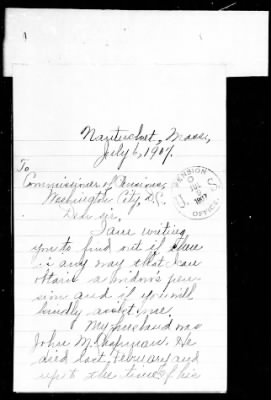 Nantucket, Mass,
July 6, 1907.
To
Commissioner of Pensions,
Washington City, D.C.
Dear Sir,
I am writing
you to find out if there
is any way that I can
obtain a widow's pen-
sion and if you will
kindly assist me.
My husband was
John M. Chapman. He
died last February and
up to the time of his
PENSION
OFFICE
U.S.
JUL
1907